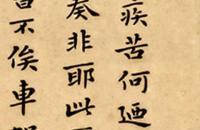 疾苦何迺
奏非耶此
不俟車